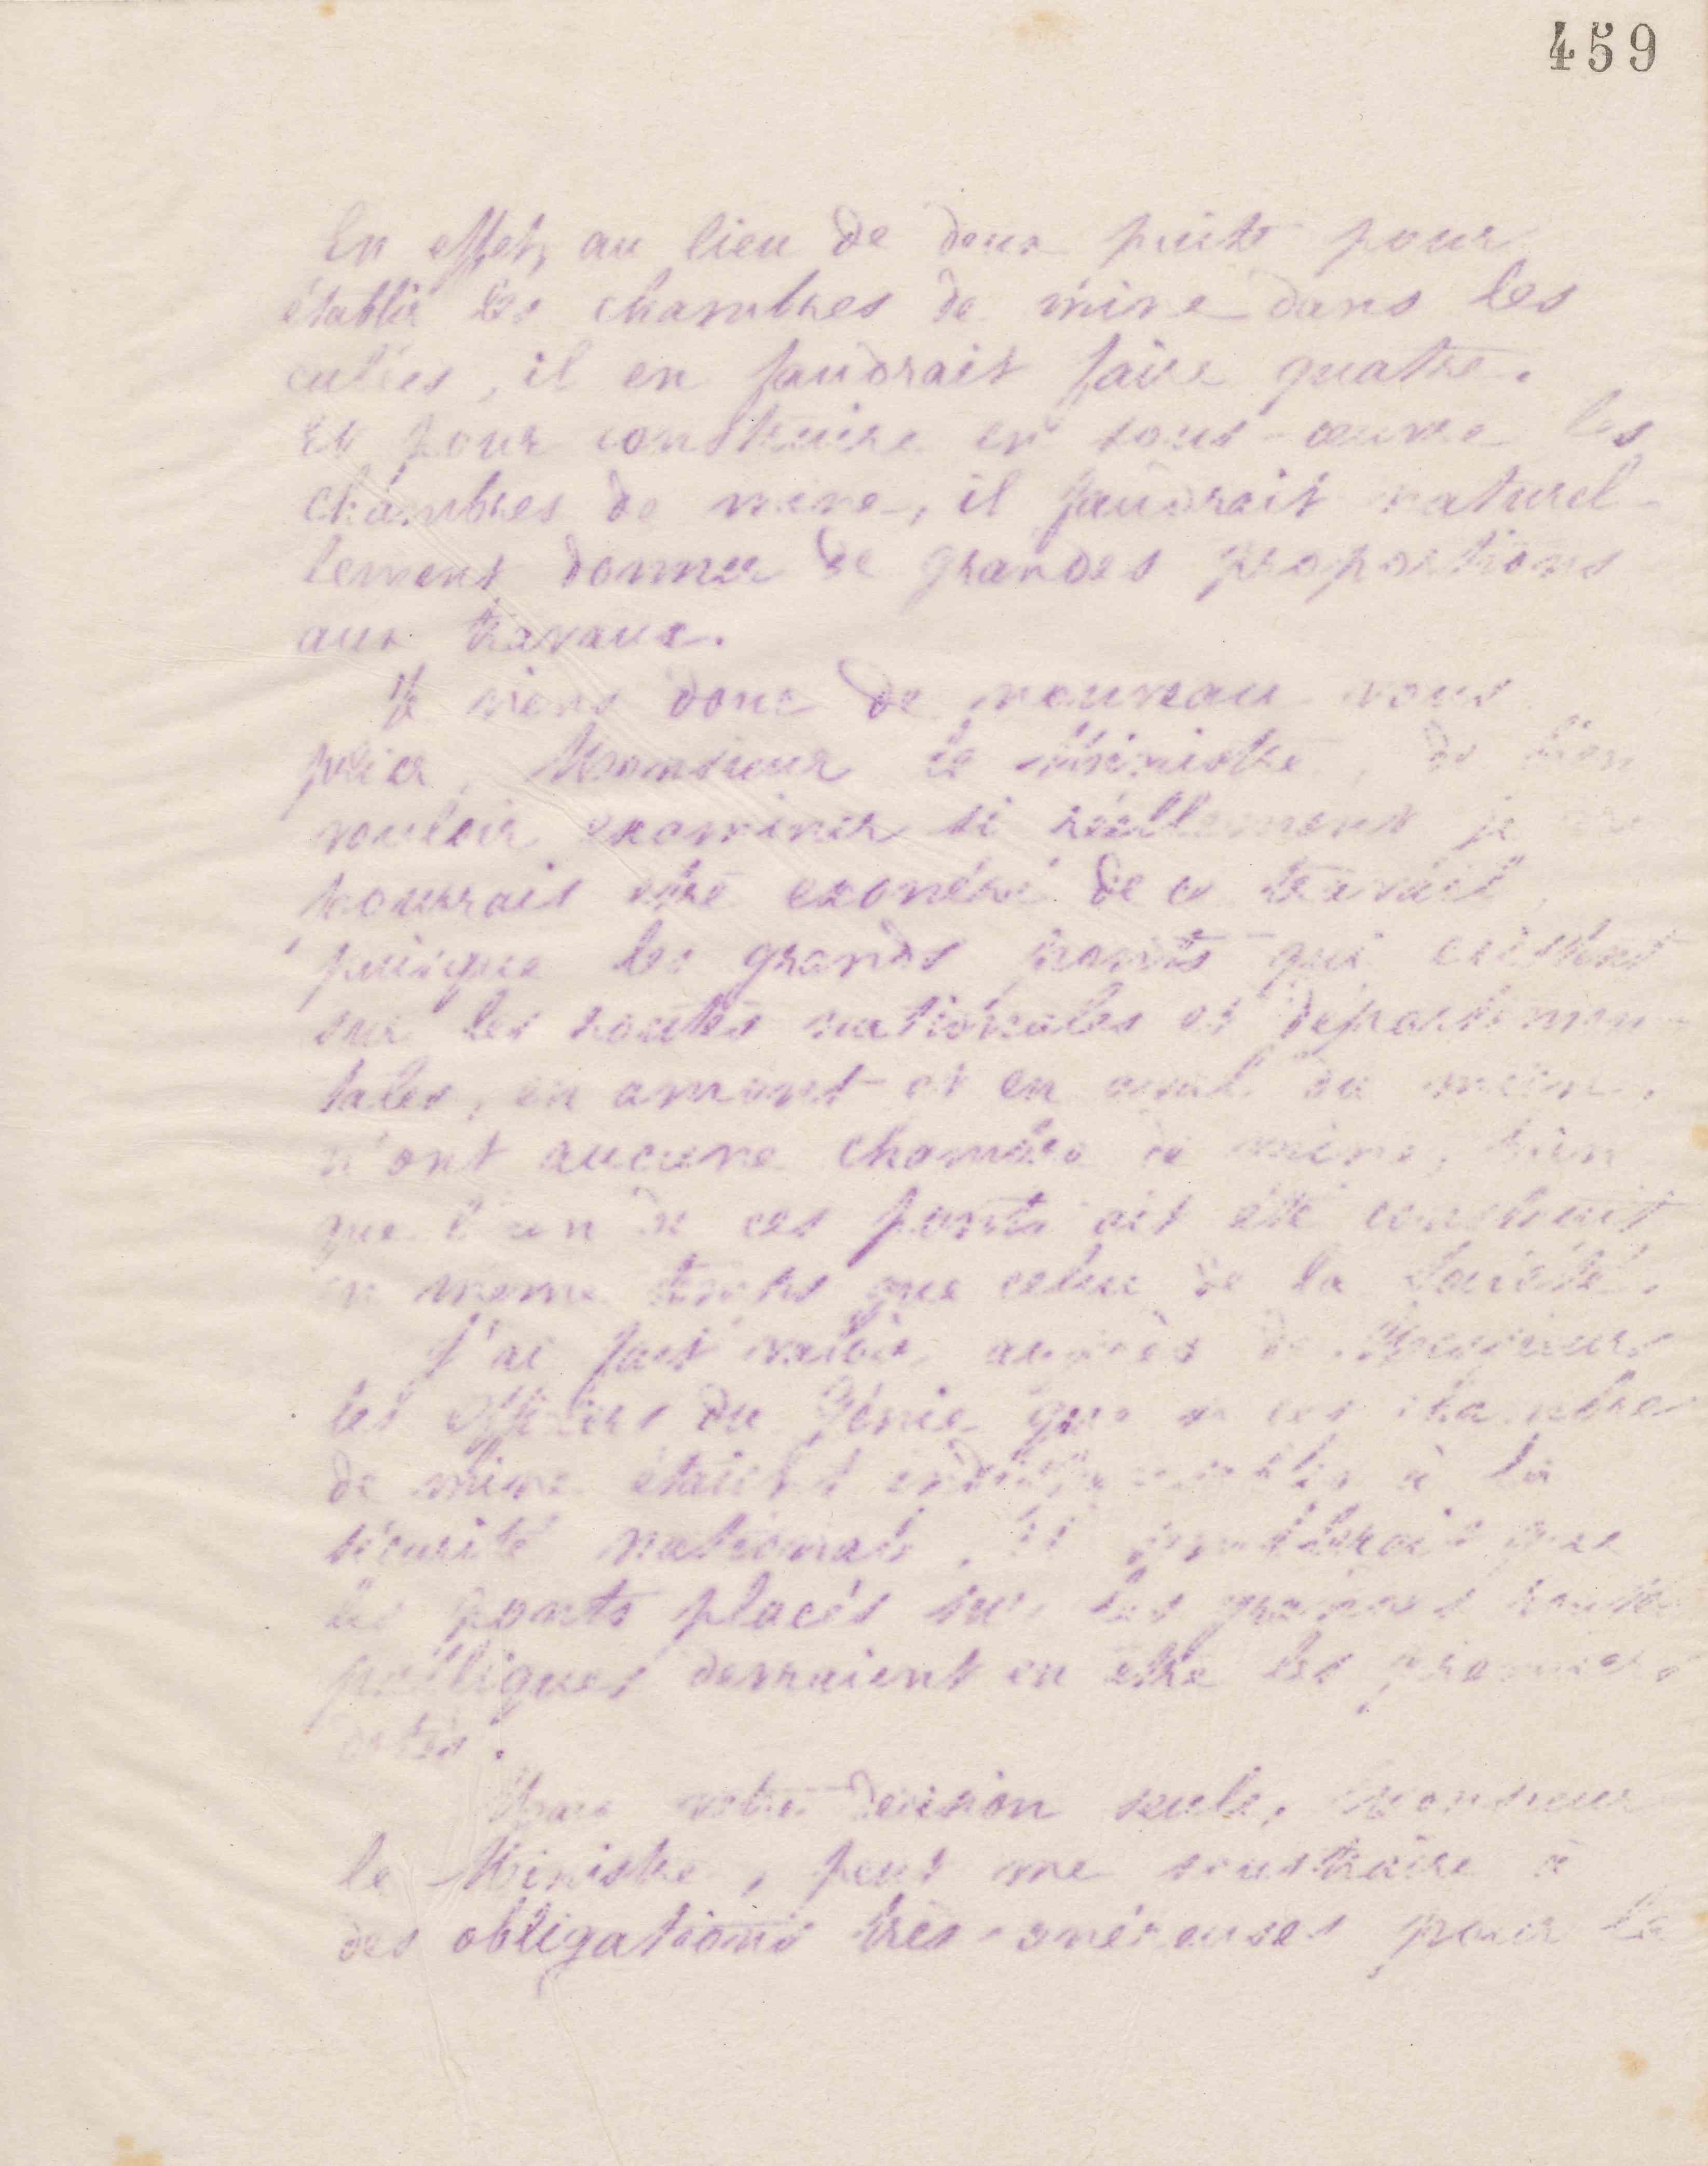 459
En effet, au lieu de deux puits pour
établir les chambres de mine dans les
culées, il en faudrait faire quatre.
et pour construire en sous-œuvre les
chambres de mine, il faudrait naturel-
lement donner de grandes proportions
aux travaux.
Je viens donc de nouveau vous
prier, Monsieur le Ministre, de bien
vouloir examiner si réellement je ne
pourrais être exonéré de ce travail,
puisque les grands ponts qui existent
sur les routes nationales et départemen-
tales, en amont et en aval du mien,
n'ont aucune chambre de mine, bien
que l'un de ces ponts ait été construit
en même temps que celui de la Société.
J'ai fait valoir, auprès de Messieurs
les officiers du Génie que si ces chambres
de mine étaient indispensables à la
sécurité nationale, il semblerait que
les ponts placés sur les grandes routes
publiques devraient en être les premiers
dotés.
Mais votre décision seule, Monsieur
le Ministre, peut me soustraire à
des obligations très onéreuses pour la